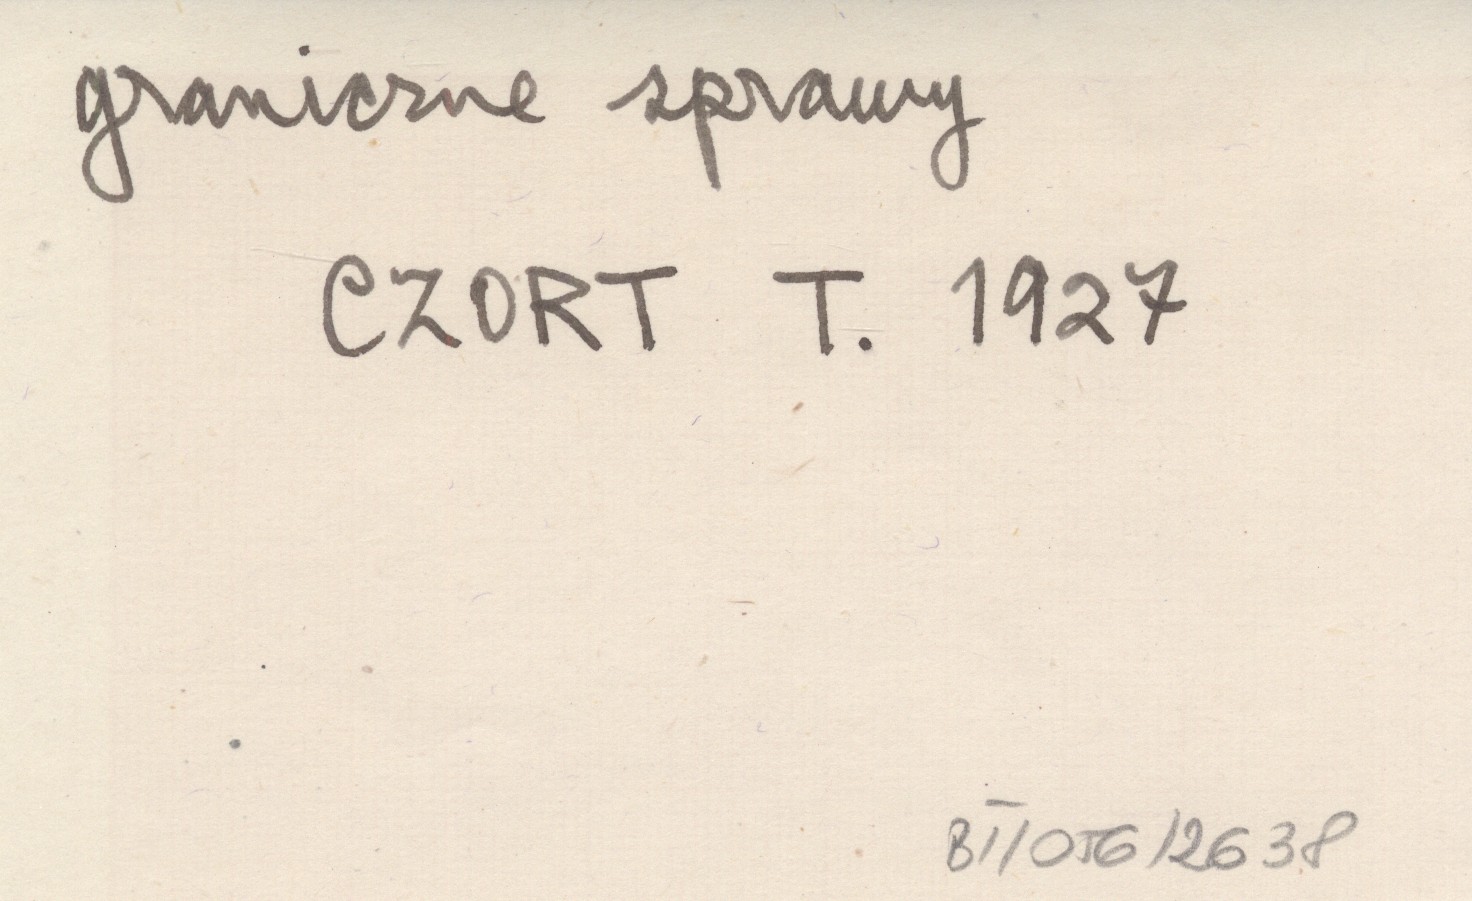 graniczne sprawy
CZORT T. 1927
BI/056/2638